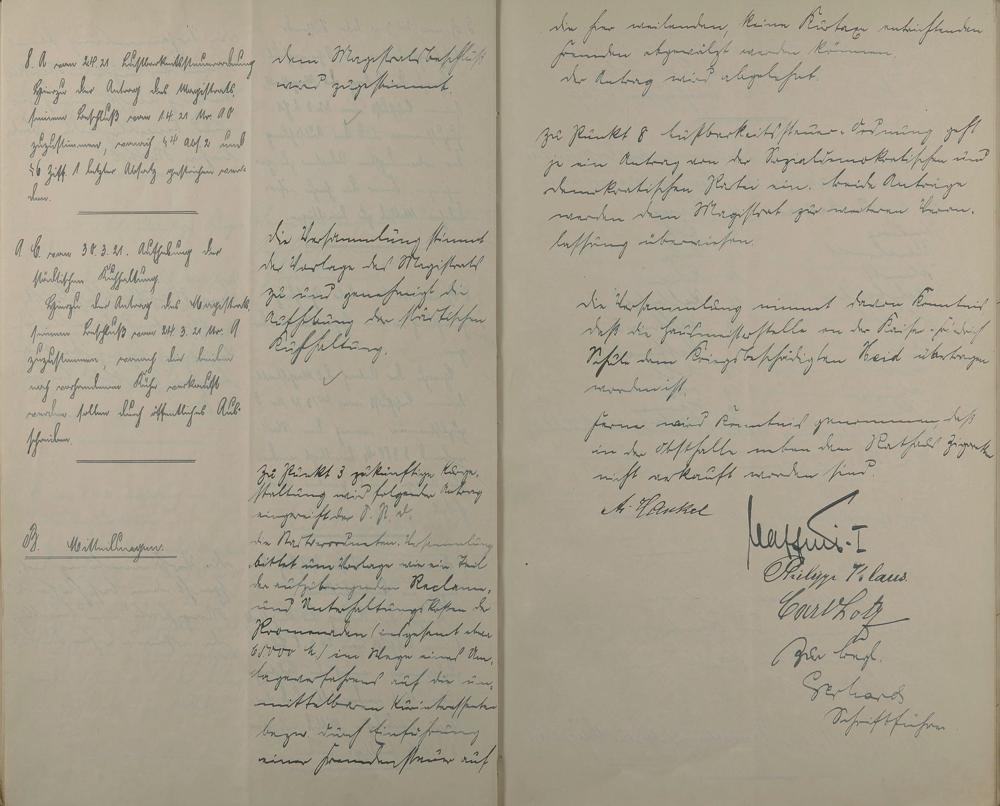 8. A vom 2.4.21. Lustbarkeitssteuerordnung
Hierzu der Antrag des Magistrats,
seinem Beschluß vom 1.4.21 Nr. 10
zuzustimmen, wonach § 4 Abs. 2 und
§ 6 Ziff. 1 letzter Absatz gestrichen wer-
den.
9. C. vom 30.3.21. Aufhebung der
städtischen Kuhhaltung.
Hierzu der Antrag des Magistrats,
seinem Beschluß vom 24.3.21 Nr. 9
zuzustimmen, wonach die beiden
noch vorhandenen Kühe verkauft
werden sollen durch öffentliches Aus-
schreiben.
B. Mitteilungen.
dem Magistratsbeschluß
wird zugestimmt.
Die Versammlung stimmt
der Vorlage des Magistrats
zu und genehmigt die
Aufhebung der städtischen
Kuhhaltung.
Zu Punkt 3 zukünftige Kurge-
staltung wird folgender Antrag
eingereicht der
die Stadtverordneten Versammlung
bittet um Vorlage wie ein Teil
der aufzubringenden Reclame-
und Unterhaltungskosten der
Promenaden (insgesamt etwa
65000 M.) im Wege eines Um-
lageverfahrens auf die un-
mittelbaren Kurinteressenten
bezw. durch Einführung
einer Fremdensteuer auf
die hier weilenden, keine Kurtaxe entrichtenden
Fremden abgewälzt werden können.
Der Antrag wird abgelehnt.
Zu Punkt 8 Lustbarkeitssteuer-Ordnung geht
je ein Antrag von der Sozialdemokratischen und
demokratischen Partei ein. beide Anträge
werden dem Magistrat zur weiteren Veran-
lassung überwiesen.
Die Versammlung nimmt davon Kenntnis
daß die Hausmeisterstelle an der Kaiser-Friedrich
Schule dem Kriegsbeschädigten Heid übertragen
worden ist.
Ferner wird Kenntnis genommen, daß
in der Obsthalle neben dem Rathaus Zigarette
nicht verkauft worden sind.
A. Henkel
Philipp Klaus.
Carl Lotz
Zur Begl.
Gerhards
Schriftführer